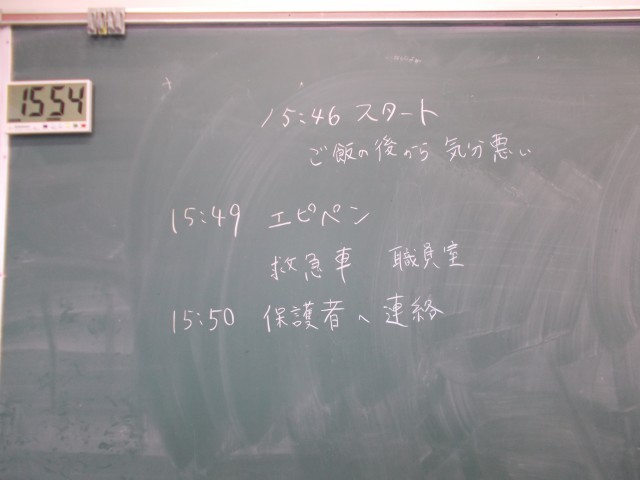 15:54
15:46 スタート
ご飯の後から 気分悪い
15:49 エピペン
救急車 職員室
15:50 保護者へ連絡